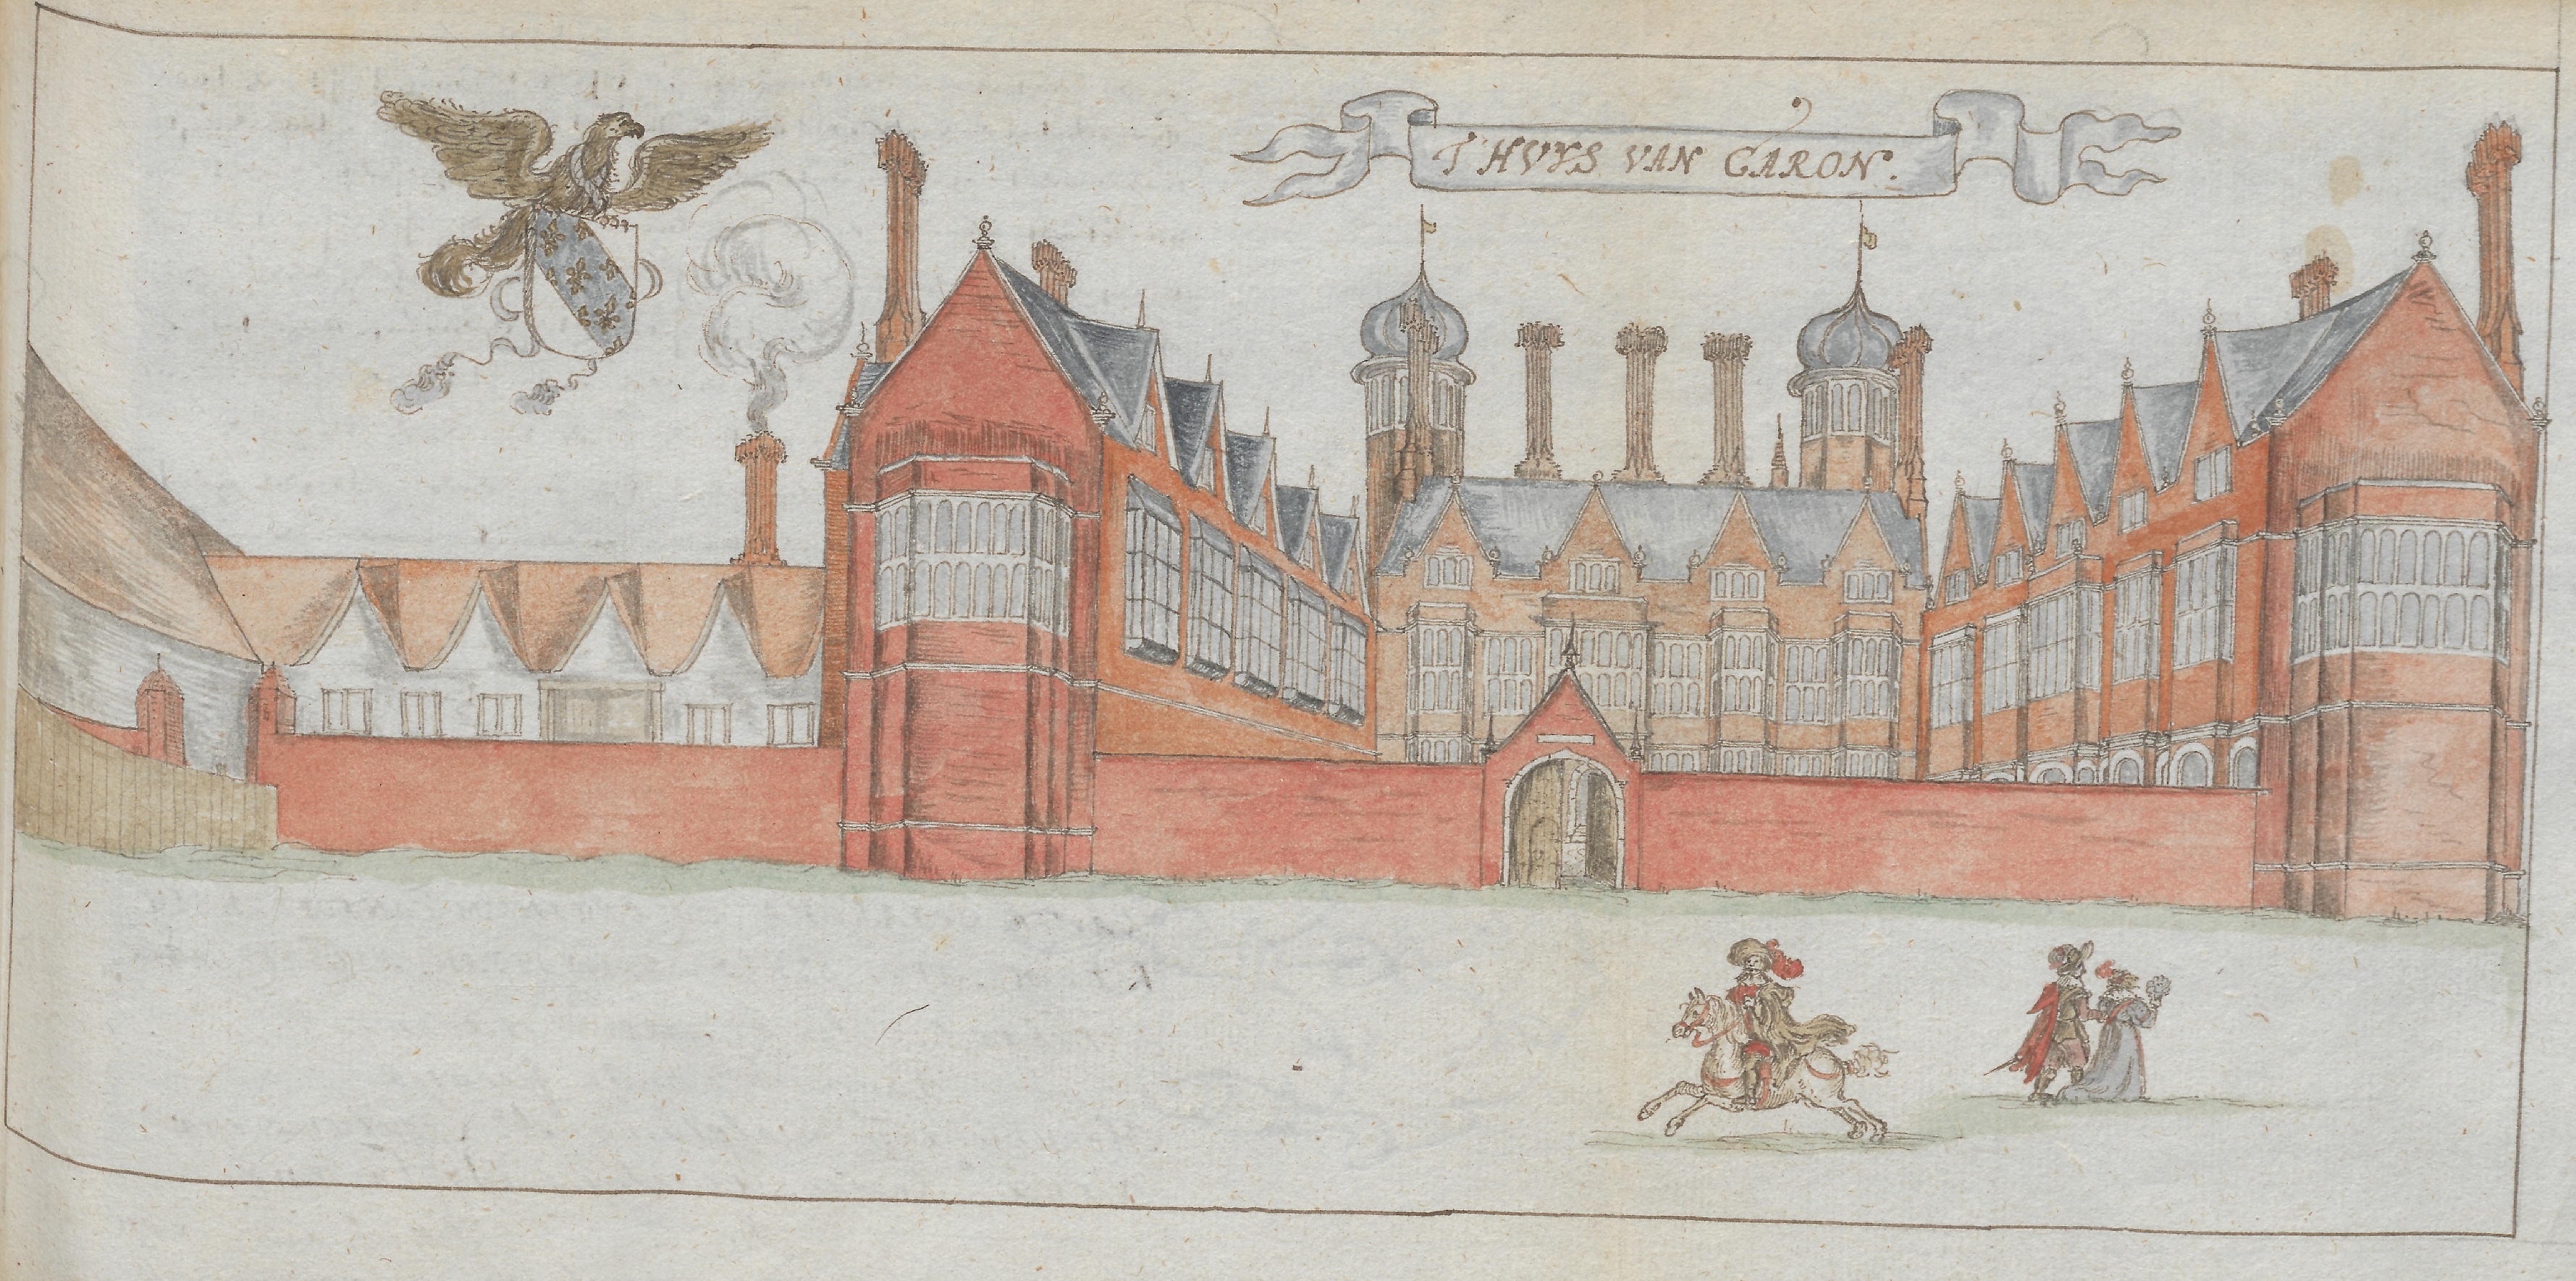 T'HVYS VAN CARON.